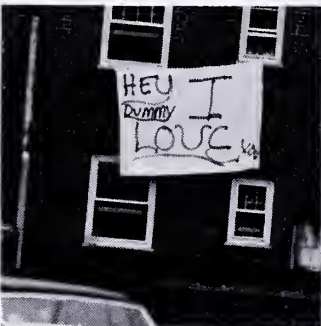 HEY
DUMMY
I
LOVE ya